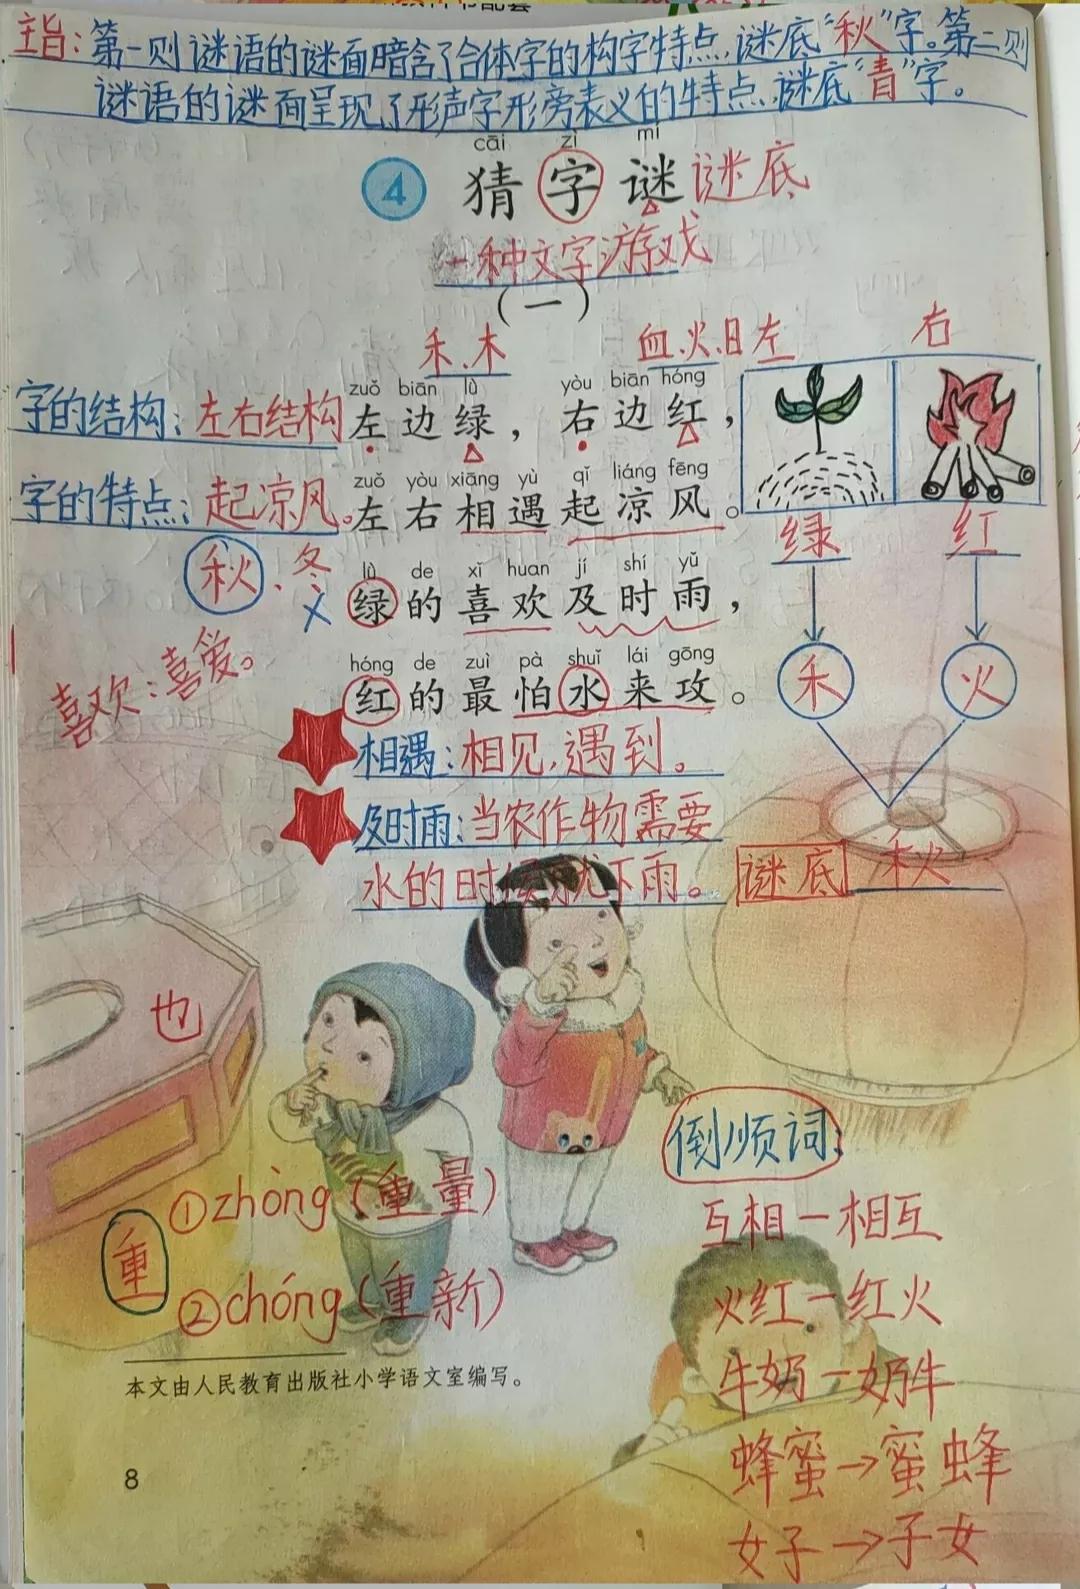 主旨：第一则谜语的谜面暗含了合体字的构字特点，谜底“秋”字。第二则
谜语的谜面呈现了形声字形旁表义的特点，谜底“青”字。
cāi zì mí
4 猜字谜 谜底
一种文字游戏
（一）
禾、木 血、火、日 左 右
zuǒ biān lǜ yòu biān hóng
字的结构：左右结构 左边绿，右边红，
zuǒ yòu xiāng yù qǐ liáng fēng
字的特点：起凉风。左右相遇起凉风。
绿 红
秋、冬 ×
lǜ de xǐ huan jí shí yǔ
绿的喜欢及时雨，
喜欢：喜爱。
hóng de zuì pà shuǐ lái gōng
红的最怕水来攻。
禾 火
相遇：相见，遇到。
及时雨：当农作物需要
水的时候就下雨。
谜底 秋
也
倒顺词：
互相一相互
火红一红火
牛奶一奶牛
蜂蜜→蜜蜂
女子→子女
重 ①zhòng（重量）
②chóng（重新）
本文由人民教育出版社小学语文室编写。
8